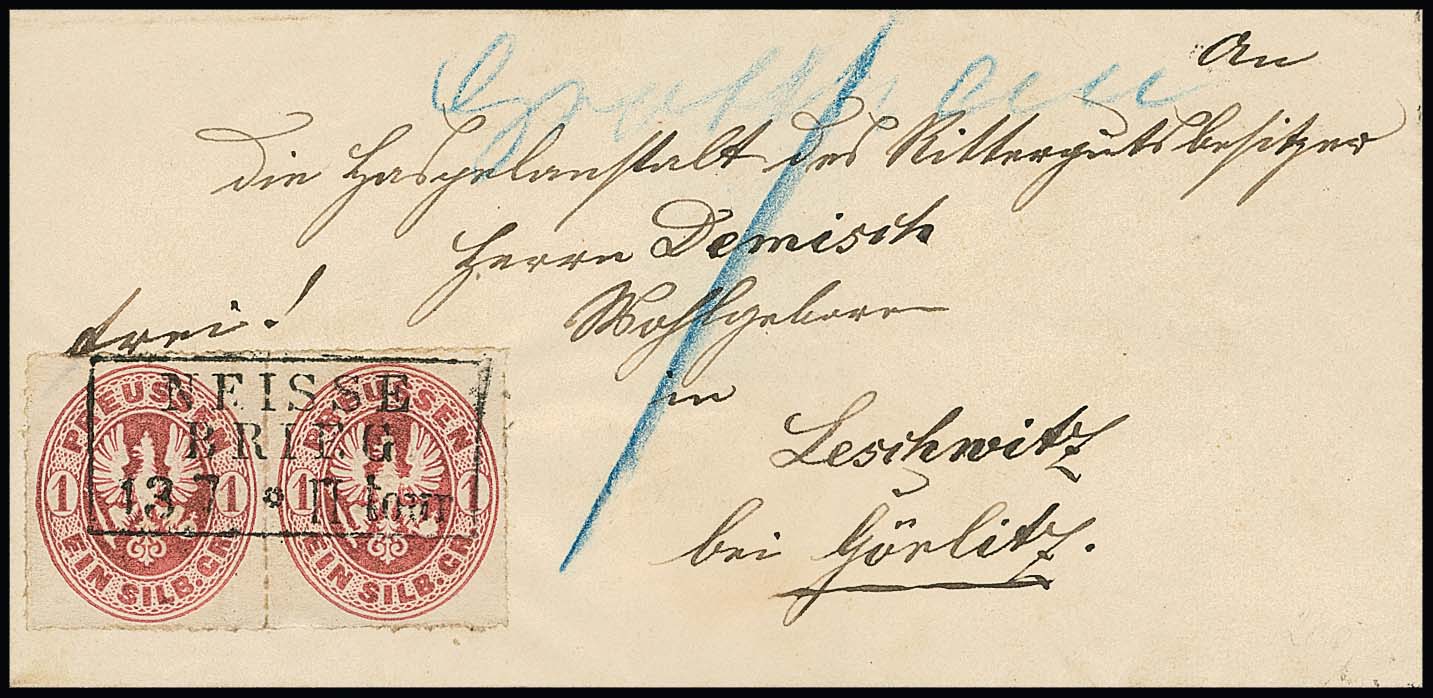 An
die Haspelanstalt des Rittergutsbesitzer
Herrn Demisch
Wohlgeboren
in
Leschwitz
bei Görlitz.
frei!
PREUSSEN PREUSSEN
1 1 1 1
EIN SILB. GR. EIN SILB. GR.
NEISSE
BRIEG
13 7 * II tour